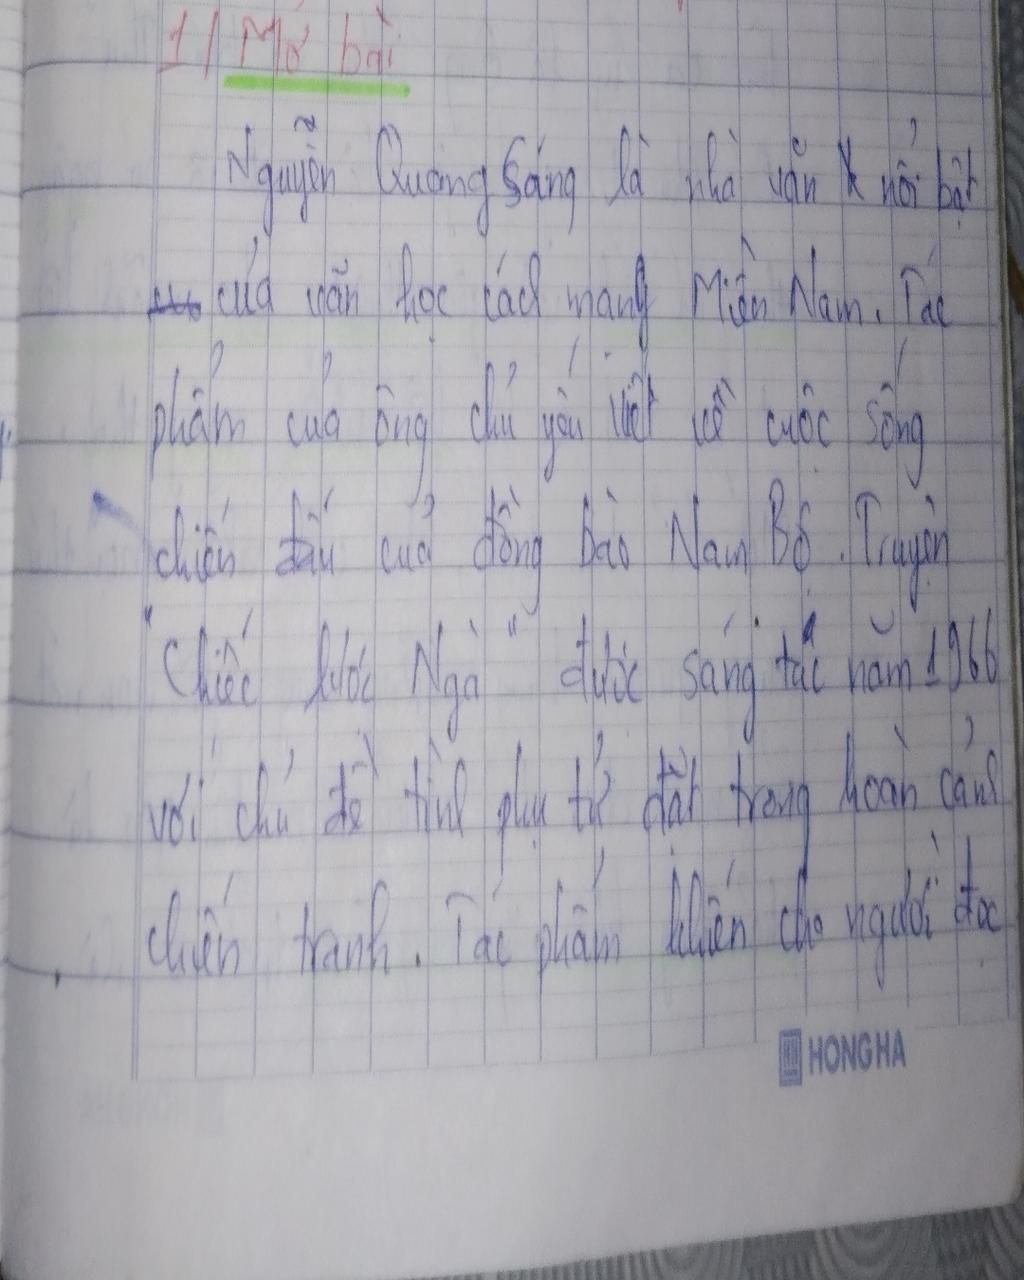 1/ Mở bài
Nguyễn Quang Sáng là nhà văn nổi bật
của văn học cách mạng Miền Nam. Tác
phẩm của ông chủ yếu viết về cuộc sống
chiến đấu của đồng bào Nam Bộ. Truyện
"Chiếc lược Ngà" được sáng tác năm 1966
với chủ đề tình phụ tử đặt trong hoàn cảnh
chiến tranh. Tác phẩm khiến cho người đọc
HONG HA